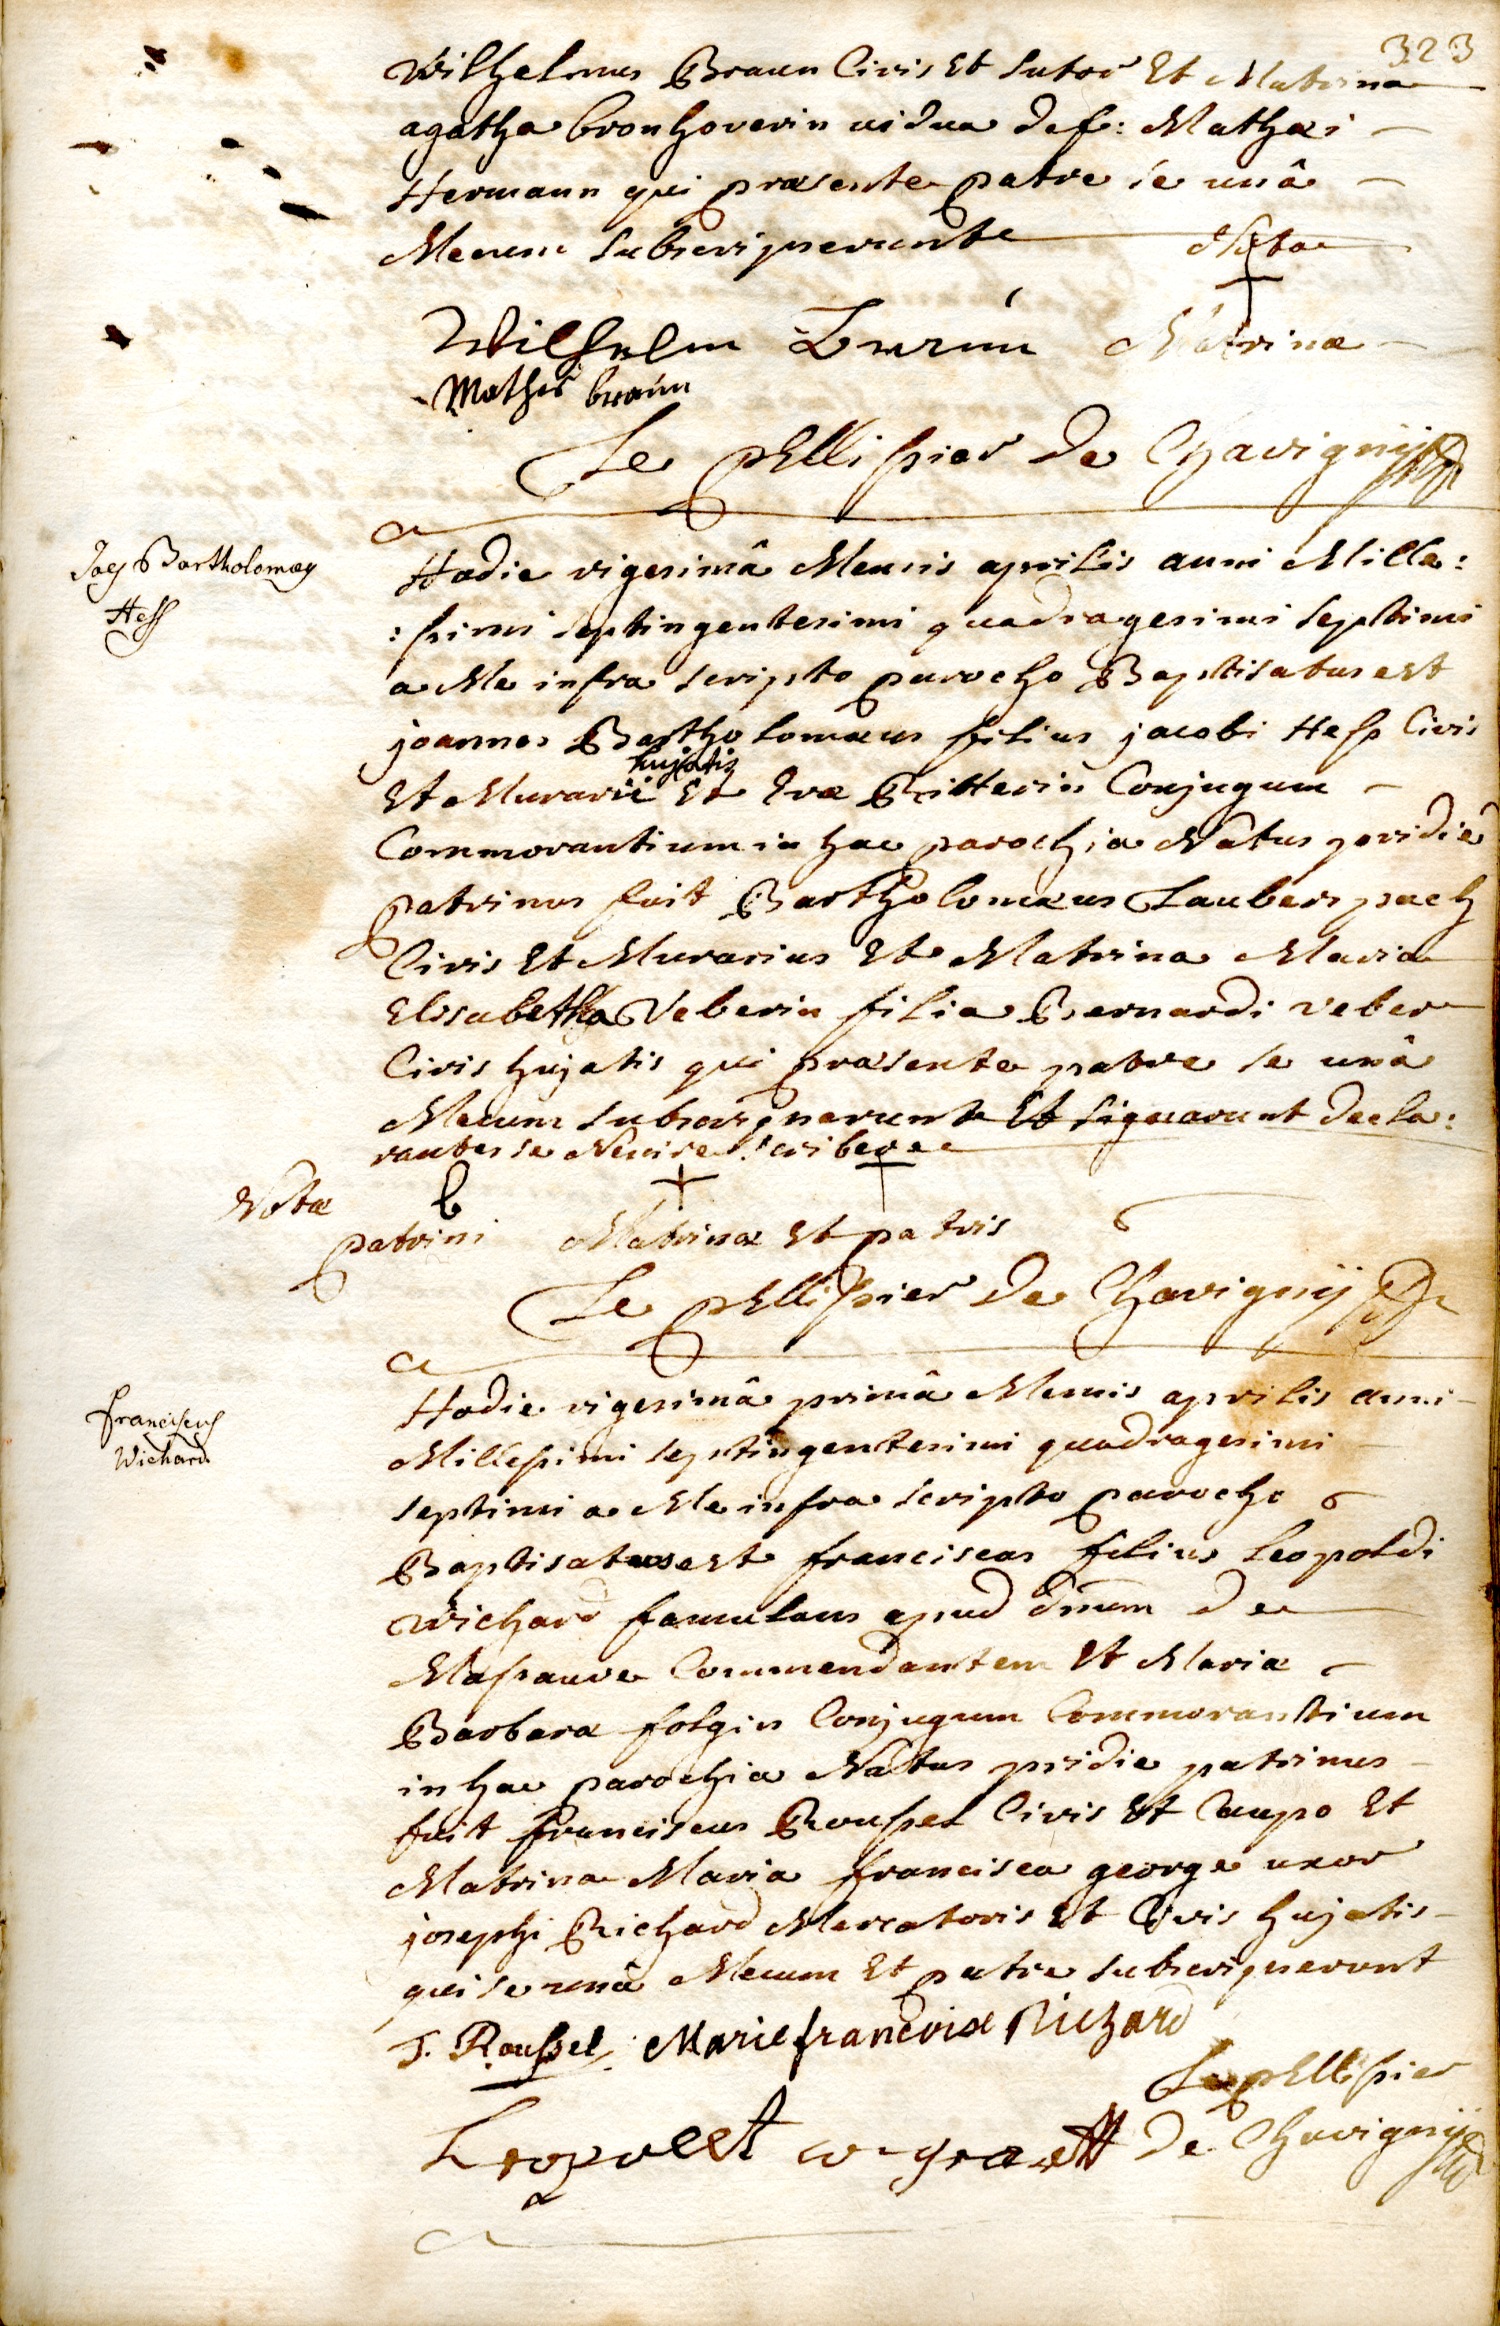 323
Wilhelmus Braun Civis Et sutor Et Matrina
agatha bronhoverin vidua def: Mathæi
Hermann qui præsente patre se unâ
Mecum subscripserunt Nota
Wilhelm Braun Matrinæ
Mathis braun
Le pEllissier De Chavignij
Joes Bartholomæg
Hess
Hodie vigesimâ Mensis aprilis anni Mille:
:simi septingentesimi quadragesimi septimi
a Me infra scripto parocho Baptisatus est
joannes Bartholomæus filius jacobi Hess Civis
hujatis
Et Murarii Et Evæ Ritterin Conjugum
Commorantium in hac parochia Natus pridie
patrinus fuit Bartholomæus Lauberspach
Civis Et Murarius Et Matrina Maria
Elisabetha Veberin filia Bernardi veber
Civis hujatis qui præsente patre se unâ
Mecum subscripserunt Et signarunt decla:
rantes se Nescire scribere
Notæ
patrini b Matrinæ Et patris
Le pEllissier De Chavignij
franciscus
Wichard
Hodie vigesimâ primâ Mensis aprilis anni
Millesimi septingentesimi quadragesimi
septimi a Me infra scripto parocho
Baptisatus est franciscus filius Leopoldi
Wichard famulans apud dnum De
Massauve Commendantem Et Mariæ
Barbaræ folgin Conjugum Commorantium
in hac parochia Natus pridie patrinus
fuit franciscus Roussel Civis Et Caupo Et
Matrina Maria francisca george uxor
josephi Richard Mercatoris Et Civis hujatis
qui se unâ Mecum Et patre subscripserunt
F. Roussel Marie francoise Richard
Le pEllissier
Leopolt De Chavignij